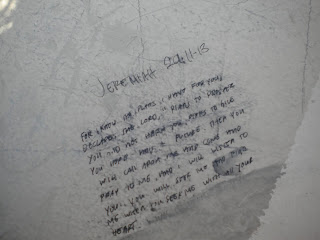 JEREMIAH 29:11-13
FOR I KNOW THE PLANS I HAVE FOR YOU
DECLARES THE LORD, PLANS TO PROSPER
YOU AND NOT HARM YOU, PLANS TO GIVE
YOU HOPE AND A FUTURE. THEN YOU
WILL CALL UPON ME AND COME AND
PRAY TO ME, AND I WILL LISTEN TO
YOU. YOU WILL SEEK ME AND FIND
ME WHEN YOU SEEK ME WITH ALL YOUR
HEART.